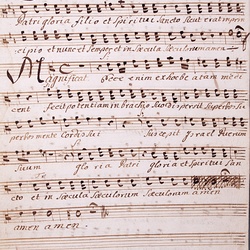 Patri gloria filio et Spiritui Sancto Sicut erat in prin
cipio et nunc et Semper et in Sæcula Sæculorum amen
Magnificat. Ecce enim ex hoc beatam me di
cent fecit potentiam in brachio Suo dispersit Superbos Su
perbos mente Cordis Sui Suscepit Israel Puerum
Suum gloria Patri gloria et Spiritui San
cto et in Sæcula Sæculorum Sæculorum amen
amen amen.